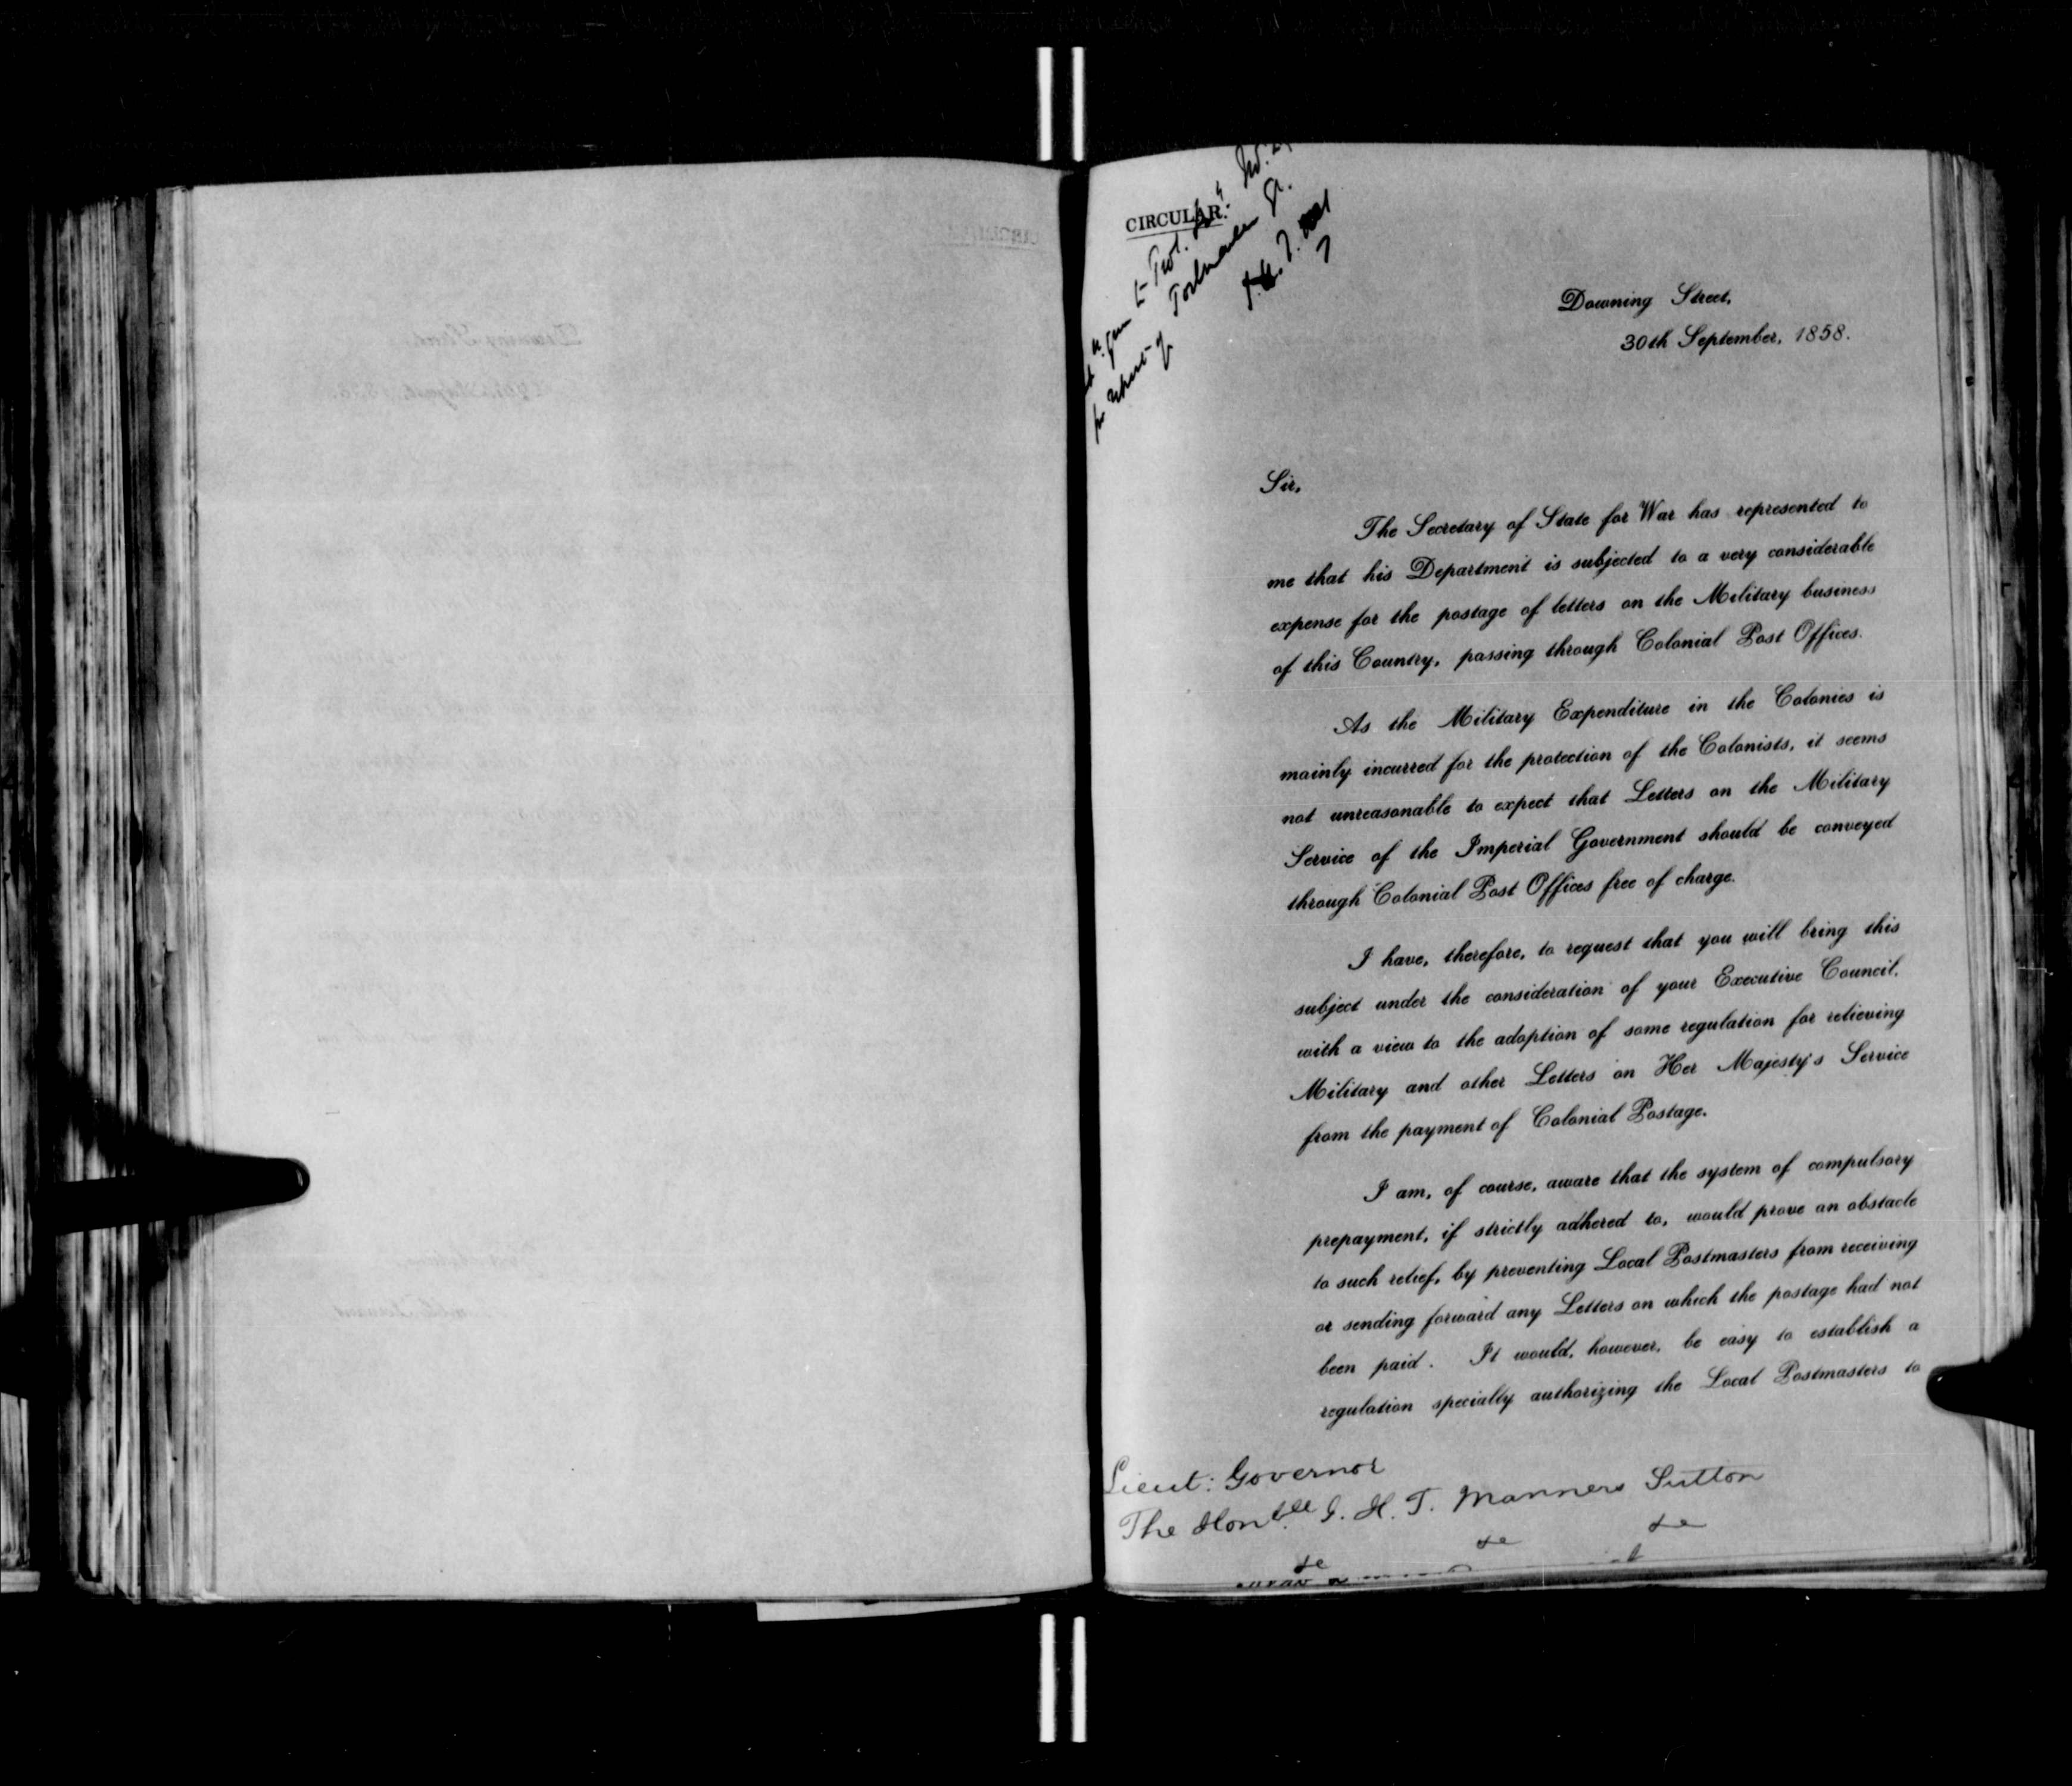 CIRCULAR.
Downing Street,
30th September, 1858.
Sir,
The Secretary of State for War has represented to
me that his Department is subjected to a very considerable
expense for the postage of letters on the Military business
of this Country, passing through Colonial Post Offices.
As the Military Expenditure in the Colonies is
mainly incurred for the protection of the Colonists, it seems
not unreasonable to expect that Letters on the Military
Service of the Imperial Government should be conveyed
through Colonial Post Offices free of charge.
I have, therefore, to request that you will bring this
subject under the consideration of your Executive Council,
with a view to the adoption of some regulation for relieving
Military and other Letters on Her Majesty's Service
from the payment of Colonial Postage.
I am, of course, aware that the system of compulsory
prepayment, if strictly adhered to, would prove an obstacle
to such relief, by preventing Local Postmasters from receiving
or sending forward any Letters on which the postage had not
been paid. It would, however, be easy to establish a
regulation specially authorizing the Local Postmasters to
Lieut: Governor
The Honble J. H. T. Manners Sutton
&c &c &c